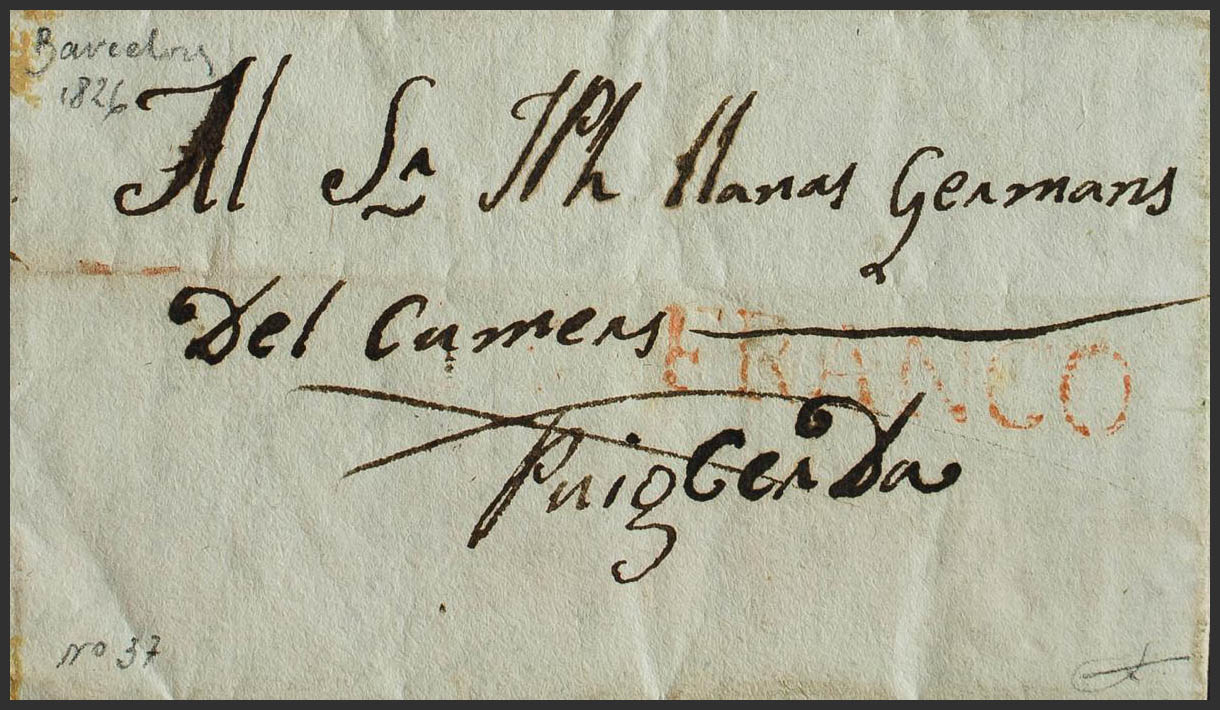 Barcelona
1826
Al Sr Jph llanas Germans
Del Cumers
FRANCO
Puig CerDa
Nº 37